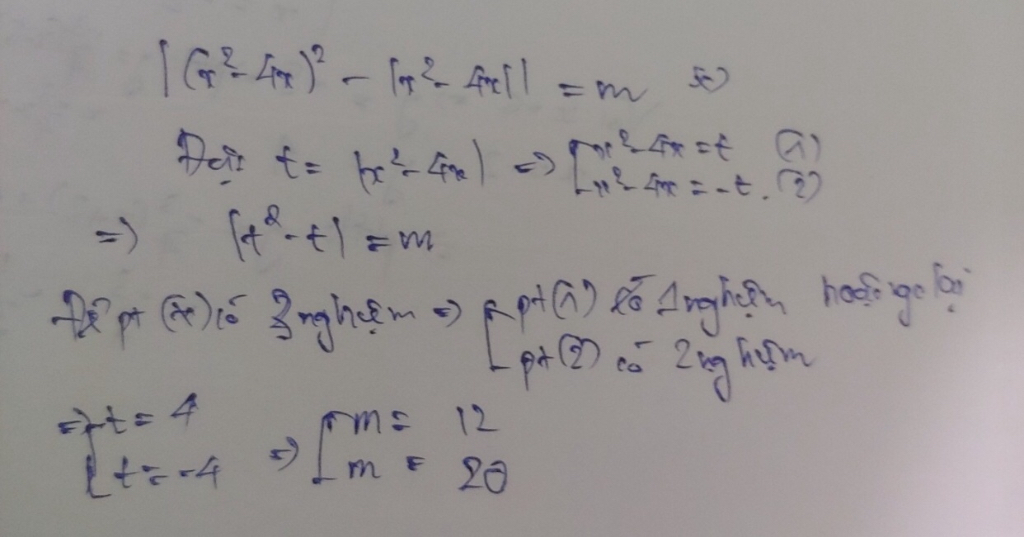 |(x²- 4x)² - |x² - 4x|| = m (*)
Đặt t = |x² - 4x| => [x² - 4x = t (1)
[x² - 4x = -t. (2)
=> |t² - t| = m
Để pt (*) có 3 nghiệm => [pt (1) có 1 nghiệm hoặc ngc lại
pt (2) có 2 nghiệm
=> [t = 4 => [m = 12
[t = -4 [m = 20